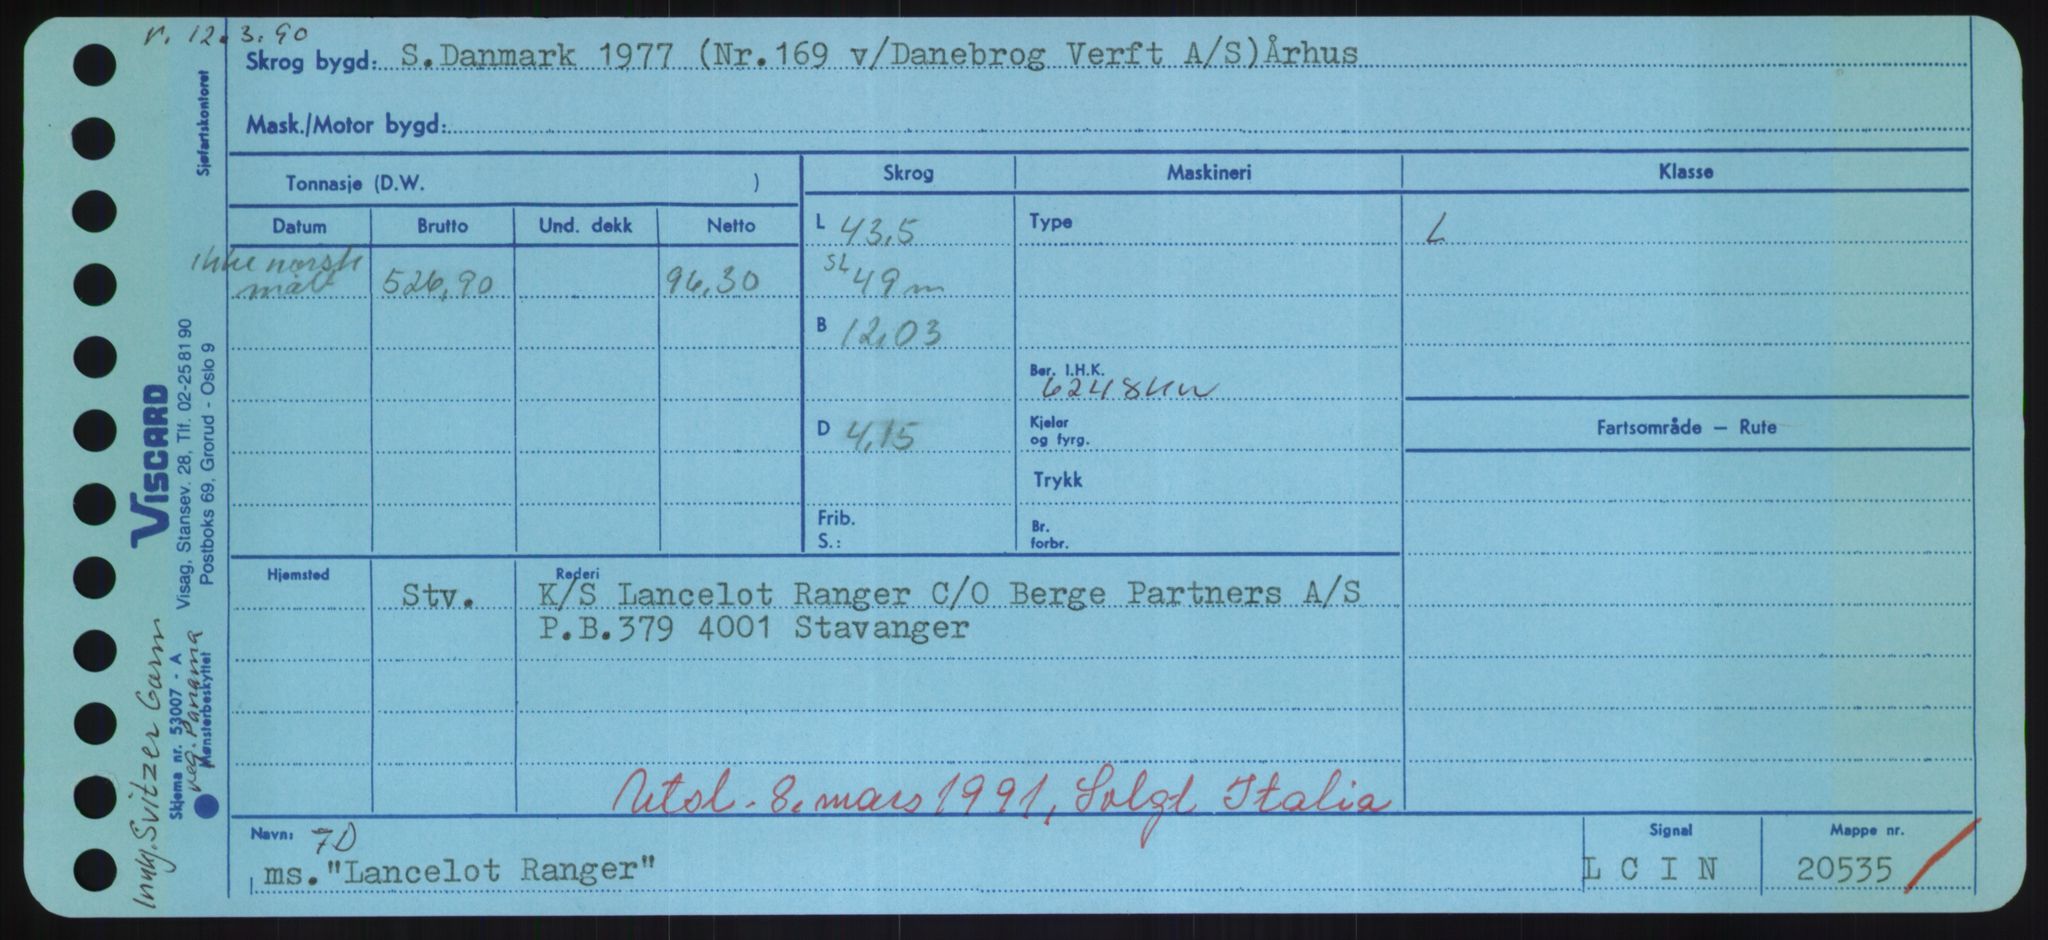 r. 12.3.90
Skrog bygd: S.Danmark 1977 (Nr.169 v/Danebrog Verft A/S)Århus
Mask./Motor bygd:
Sjøfartskontoret
Tonnasje (D.W. )
Skrog Maskineri Klasse
Datum Brutto Und. dekk Netto
L 43,5 Type L
ikke norsk
mål 526,90 96,30
SL 49 m
B 12,03
Ber. I.H.K.
6248 KW
D 4,15
Kjeler
og fyrg.
Fartsområde — Rute
Trykk
Frib.
S.:
Br.
forbr.
Hjemsted Stv.
Rederi
K/S Lancelot Ranger C/O Berge Partners A/S
P.B.379 4001 Stavanger
Utsl. 8. mars 1991, Solgt Italia
Navn: 7D
ms."Lancelot Ranger"
Signal
L C I N
Mappe nr.
20535
VISCARD
Visag, Stansev. 28, Tlf. 02-25 81 90
Postboks 69, Grorud - Oslo 9
Skjema nr. 53007 - A
Mønsterbeskyttet
Svitzer Garm
reg. Panama